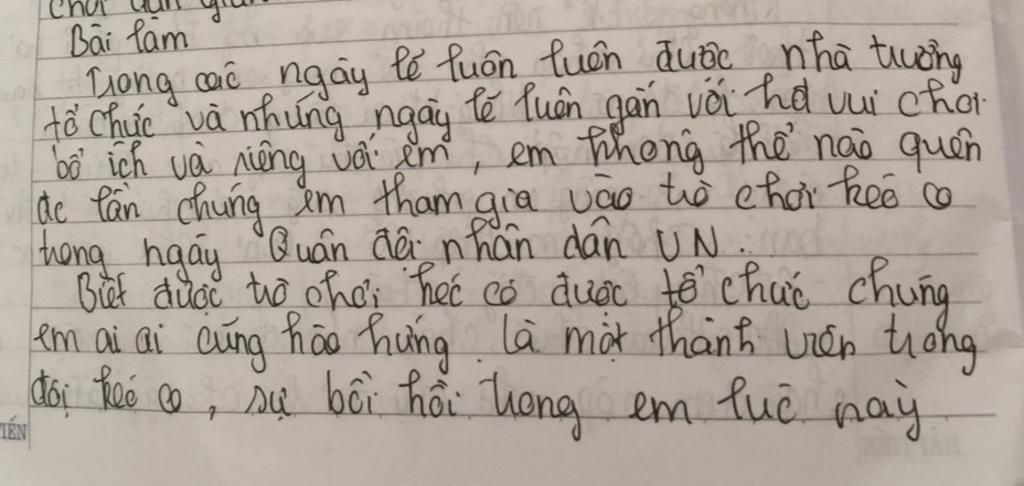 chơi dân gian
Bài làm
Trong các ngày lễ luôn luôn được nhà trường
tổ chức và những ngày lễ luôn gắn với hđ vui chơi
bổ ích và riêng với em, em không thể nào quên
đc lần chúng em tham gia vào trò chơi kéo co
trong ngày Quân đội nhân dân VN.
Biết được trò chơi kéo co được tổ chức chúng
em ai ai cũng hào hứng. Là một thành viên trong
đội kéo co, sự bồi hồi trong em lúc này
IẾN